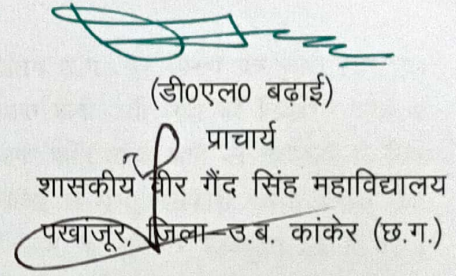 (डी0एल0 बढ़ाई)
प्राचार्य
शासकीय वीर गैंद सिंह महाविद्यालय
पखांजूर, जिला–उ.ब. कांकेर (छ.ग.)